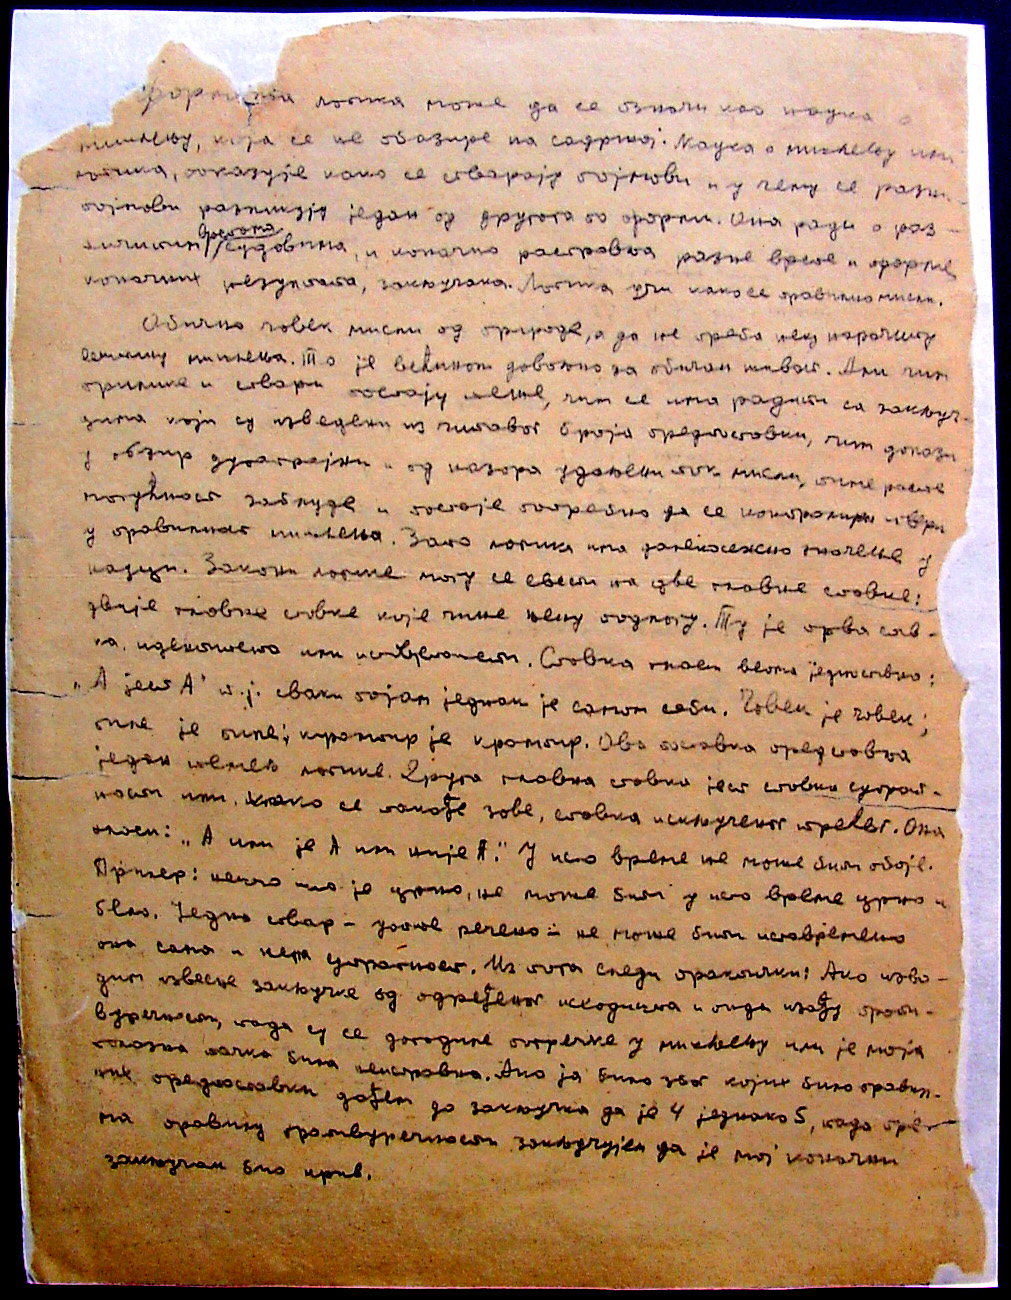 Формална логика може да се означи као наука о
мишљењу, која се не обазире на садржај. Наука о мишљењу или
логика, показује како се стварају појмови и у чему се разни
појмови разликују један од другога по форми. Она ради о раз-
личитим врстама судовима, и коначно расправља разне врсте и форме
коначних резултата, закључака. Логика учи како се правилно мисли.
Обично човек мисли од природе, а да не треба неку нарочиту
вештину мишљења. То је већином довољно за обичан живот. Али чим
прилике и ствари постају теже, чим се има радити са закључ-
цима који су изведени из читавог броја предпоставки, чим долази
у обзир дуготрајни и од назора удаљени ток мисли, тиме расте
могућност заблуде и постаје потребно да се контролира ствари
у правилност мишљења. Зато логика има далекосежно значење у
науци. Закони логике могу се свести на две главне ставке:
двије главне ставке које чине њену подлогу. Ту је прва став-
ка, идентитета или истоветности. Ставка гласи веома једноставно:
„А јест А" т.ј. сваки појам једнак је самом себи. Човек је човек;
пиле је пиле; кромпир је кромпир. Ова поставка представља
један темељ логике. Друга главна ставка јест ставка супрот-
ности или, како се такође зове, ставка искљученог трећег. Она
гласи: „А или је А или није А." У исто време не може бити обоје.
Пример: нешто што је црно, не може бити у исто време црно и
бело. Једна ствар – уопште речено – не може бити истовремено
она сама и њена супротност. Из тога следи практички: Ако изво-
дим извесне закључке од одређеног исходишта и онда изађу проти-
вуречности, тада су се догодиле погрешке у мишљењу или је моја
полазна тачка била неисправна. Ако ја било због којих било правил-
них предпоставки дођем до закључка да је 4 једнако 5, тада пре-
ма правилу противуречности закључујем да је мој коначни
закључак био крив.